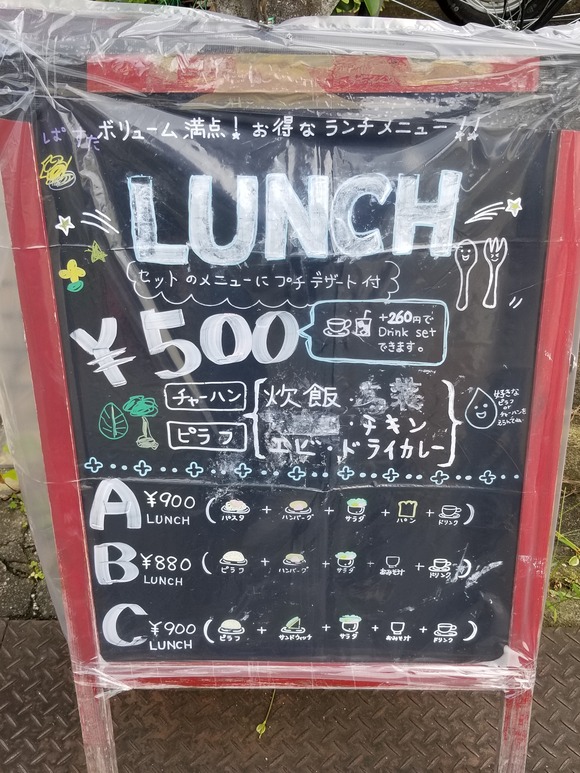 ぱすた
ボリューム満点! お得なランチメニュー!!
LUNCH
セットのメニューにプチデザート付
¥500
+260円で
Drink set
できます。
チャーハン
ピラフ
炊飯・
・チキン
エビ・ドライカレー
好きな
ピラフ
or
チャーハンを
A ¥900 LUNCH (パスタ + ハンバーグ + サラダ + パン + ドリンク)
B ¥880 LUNCH (ピラフ + ハンバーグ + サラダ + おみそ汁 + ドリンク)
C ¥900 LUNCH (ピラフ + サンドウィッチ + サラダ + おみそ汁 + ドリンク)